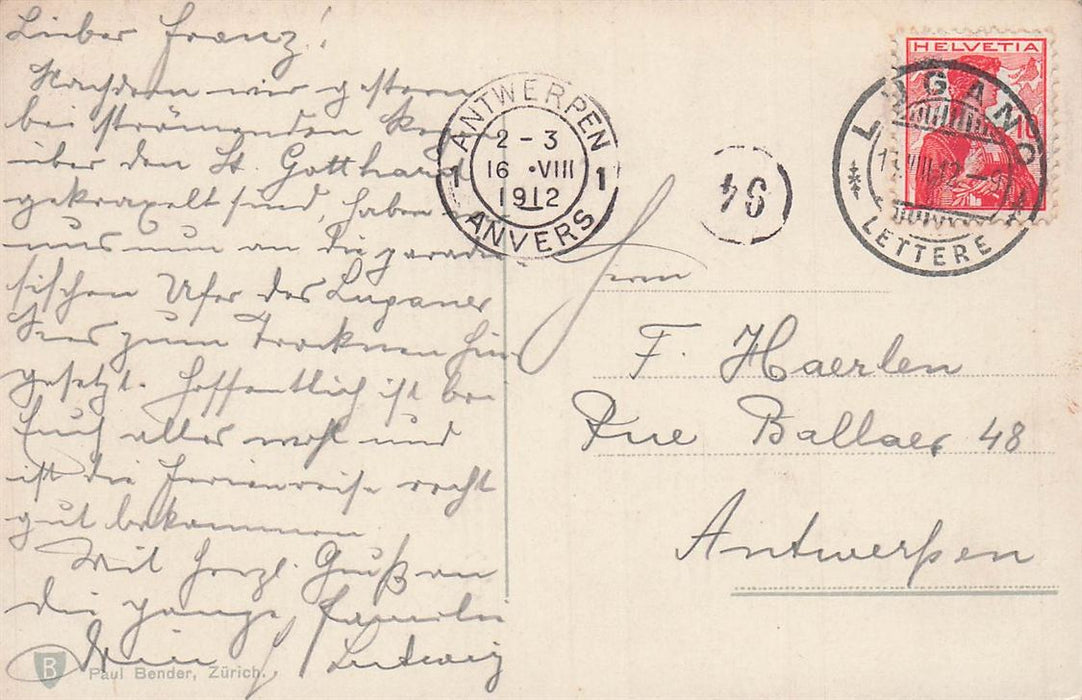 Lieber Franz!
Nachdem wir gestern
bei strömendem Re
über den St. Gotthard
gekraxelt sind, haben
uns nun an die paradi
sischen Ufer des Luganer
Sees zum Trocknen hin
gesetzt. Hoffentlich ist bei
Euch alles wohl und
ist die Ferienreise recht
gut bekommen
Mit herzl. Gruß an
die ganze Familie
Dein Ludwig
Paul Bender, Zürich.
B
ANTWERPEN
2 - 3
1 16 · VIII 1
1912
ANVERS
94
HELVETIA
10
LUGANO
LETTERE
Herrn
F. Haerlen
Rue Ballaer 48
Antwerpen